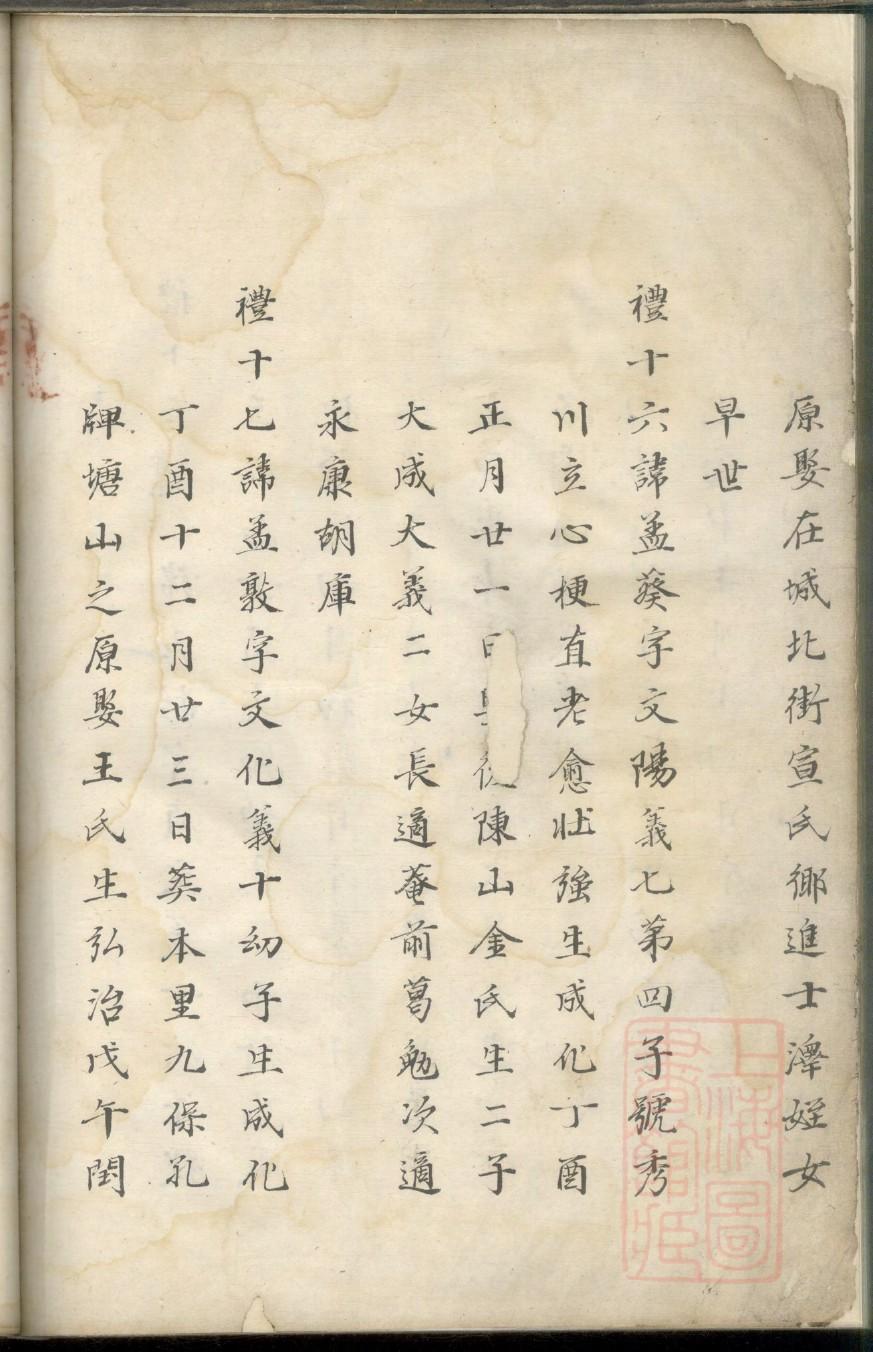 原娶在城北街宣氏鄉進士澤姪女
早世
禮十六諱孟葵字文陽義七第四子號秀
川立心梗直老愈壯強生成化丁酉
正月廿一日 陳山金氏生二子
大成大義二女長適菴前葛勉次適
永康胡庫
禮十七諱孟敦字文化義十幼子生成化
丁酉十二月廿三日葬本里九保孔
牌塘山之原娶王氏生弘治戊午閏
上海圖書館藏